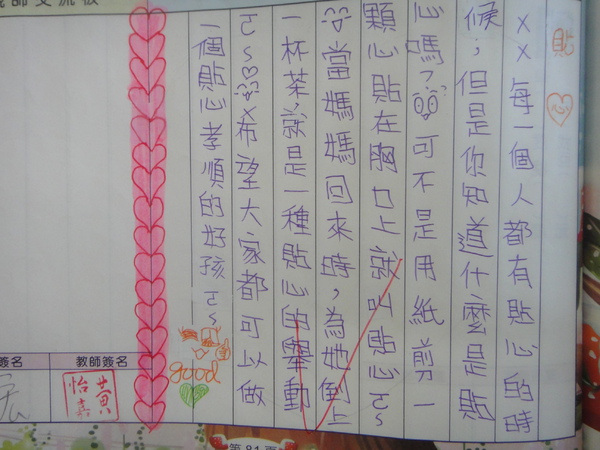 貼
××每一個人都有貼心的時
候；但是你知道什麼是貼
心嗎？可不是用紙剪一
顆心貼在胸口上就叫貼心ㄛ~
當媽媽回來時，為她倒上
一杯茶，就是一種貼心的舉動
ㄛ~×希望大家都可以做
一個貼心孝順的好孩ㄛ~
good
教師簽名
黃怡嘉
簽名